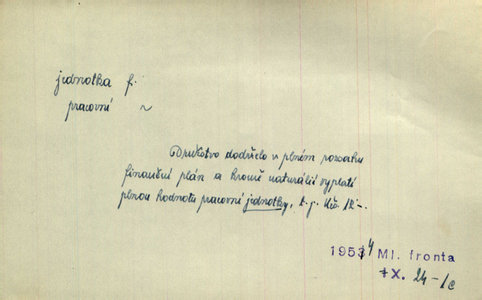 jednotka f.
pracovní ~
Družstvo dodrželo v plném rozsahu
finanční plán a kromě naturálií vyplatí
plnou hodnotu pracovní jednotky, t. j. Kčs 12–.
1954 Ml. fronta
IX. 24 – 1c